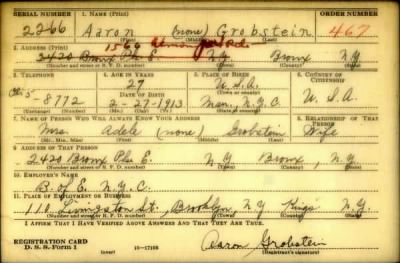 SERIAL NUMBER 1. NAME (Print) ORDER NUMBER
2266 Aaron (none) Grobstein 467
(First) (Middle) (Last)
2. ADDRESS (Print) 1566 Rd.
2420 Bronx Pk. E. N.Y. Bronx N.Y.
(Number and street or R. F. D. number) (Town) (County) (State)
3. TELEPHONE 4. AGE IN YEARS 5. PLACE OF BIRTH 6. COUNTRY OF CITIZENSHIP
27 U.S.A.
5-8772 DATE OF BIRTH Man. N.Y.C. U.S.A.
2-27-1913
(Exchange) (Number) (Mo.) (Day) (Yr.) (State or country)
7. NAME OF PERSON WHO WILL ALWAYS KNOW YOUR ADDRESS 8. RELATIONSHIP OF THAT PERSON
Mrs. Adele (none) Grobstein Wife
(Mr., Mrs., Miss) (First) (Middle) (Last)
9. ADDRESS OF THAT PERSON
2420 Bronx Pk. E. N.Y. Bronx, N.Y.
(Number and street or R. F. D. number) (Town) (County) (State)
10. EMPLOYER'S NAME
B. of E. N.Y.C.
11. PLACE OF EMPLOYMENT OR BUSINESS
110 Livingston St., Brooklyn, N.Y. Kings N.Y.
(Number and street or R. F. D. number) (Town) (County) (State)
I AFFIRM THAT I HAVE VERIFIED ABOVE ANSWERS AND THAT THEY ARE TRUE.
REGISTRATION CARD
D. S. S. Form 1 (over) 16-17105 Aaron Grobstein